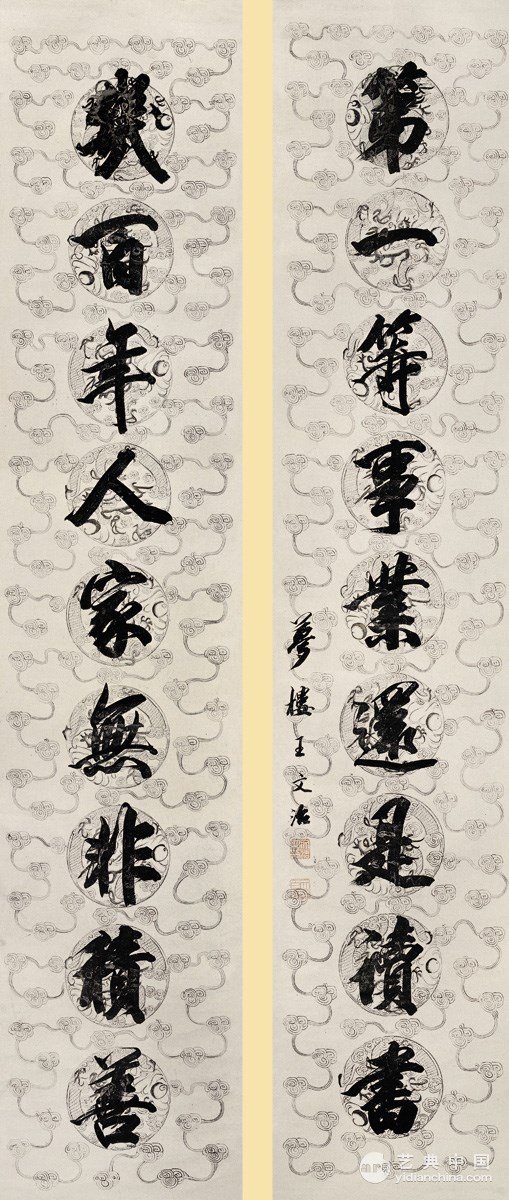 第一等事業還是讀書
夢樓王文治
幾百年人家無非積善
艺典中国
yidianchina.com